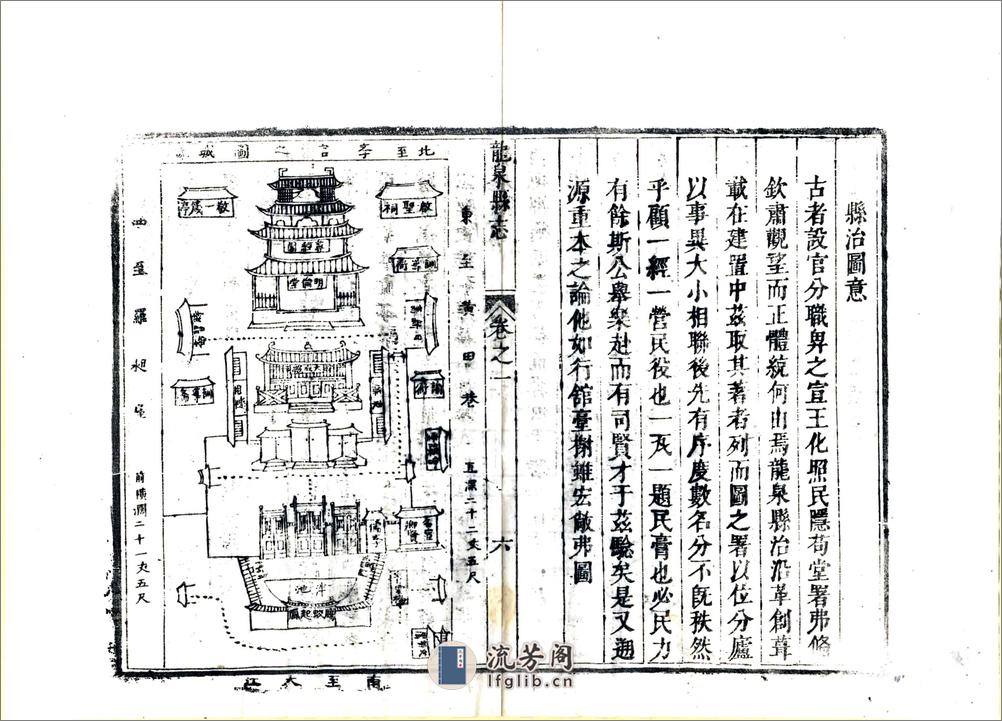 縣治圖意
古者設官分職卑之宣王化照民隱苟堂署弗脩
欽肅觀望而正體統何由焉龍泉縣治沿革創葺
載在建置中茲取其著者列而圖之署以位分廬
以事異大小相聯後先有序度數名分不旣秩然
乎顧一經一營民役也一瓦一題民膏也必民力
有餘斯公舉衆赴而有司賢才于茲驗矣是又遡
源重本之論他如行館臺榭雖宏敞弗圖
龍泉縣志
卷之一
六
東至黃田巷
直深二十二丈五尺
北至
之圖城
啟聖祠
敬一
尊經閣
明倫堂
泮池
騰蛟起鳳
西至羅
前橫濶二十一丈五尺
南至大江
流芳阁
lfglib.cn